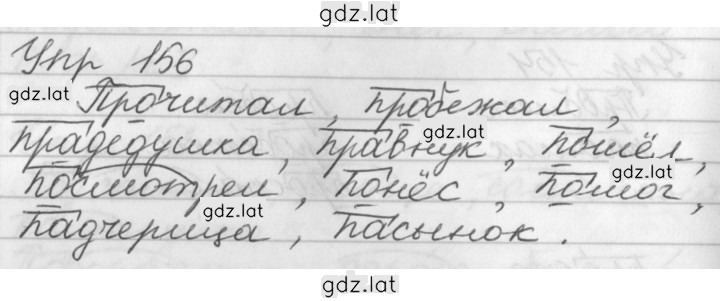 gdz.lat
Упр 156
gdz.lat
Прочитал, пробежал,
прадедушка, правнук, пошёл,
gdz.lat
посмотрел, понёс, помог,
gdz.lat
gdz.lat
падчерица, пасынок.
gdz.lat